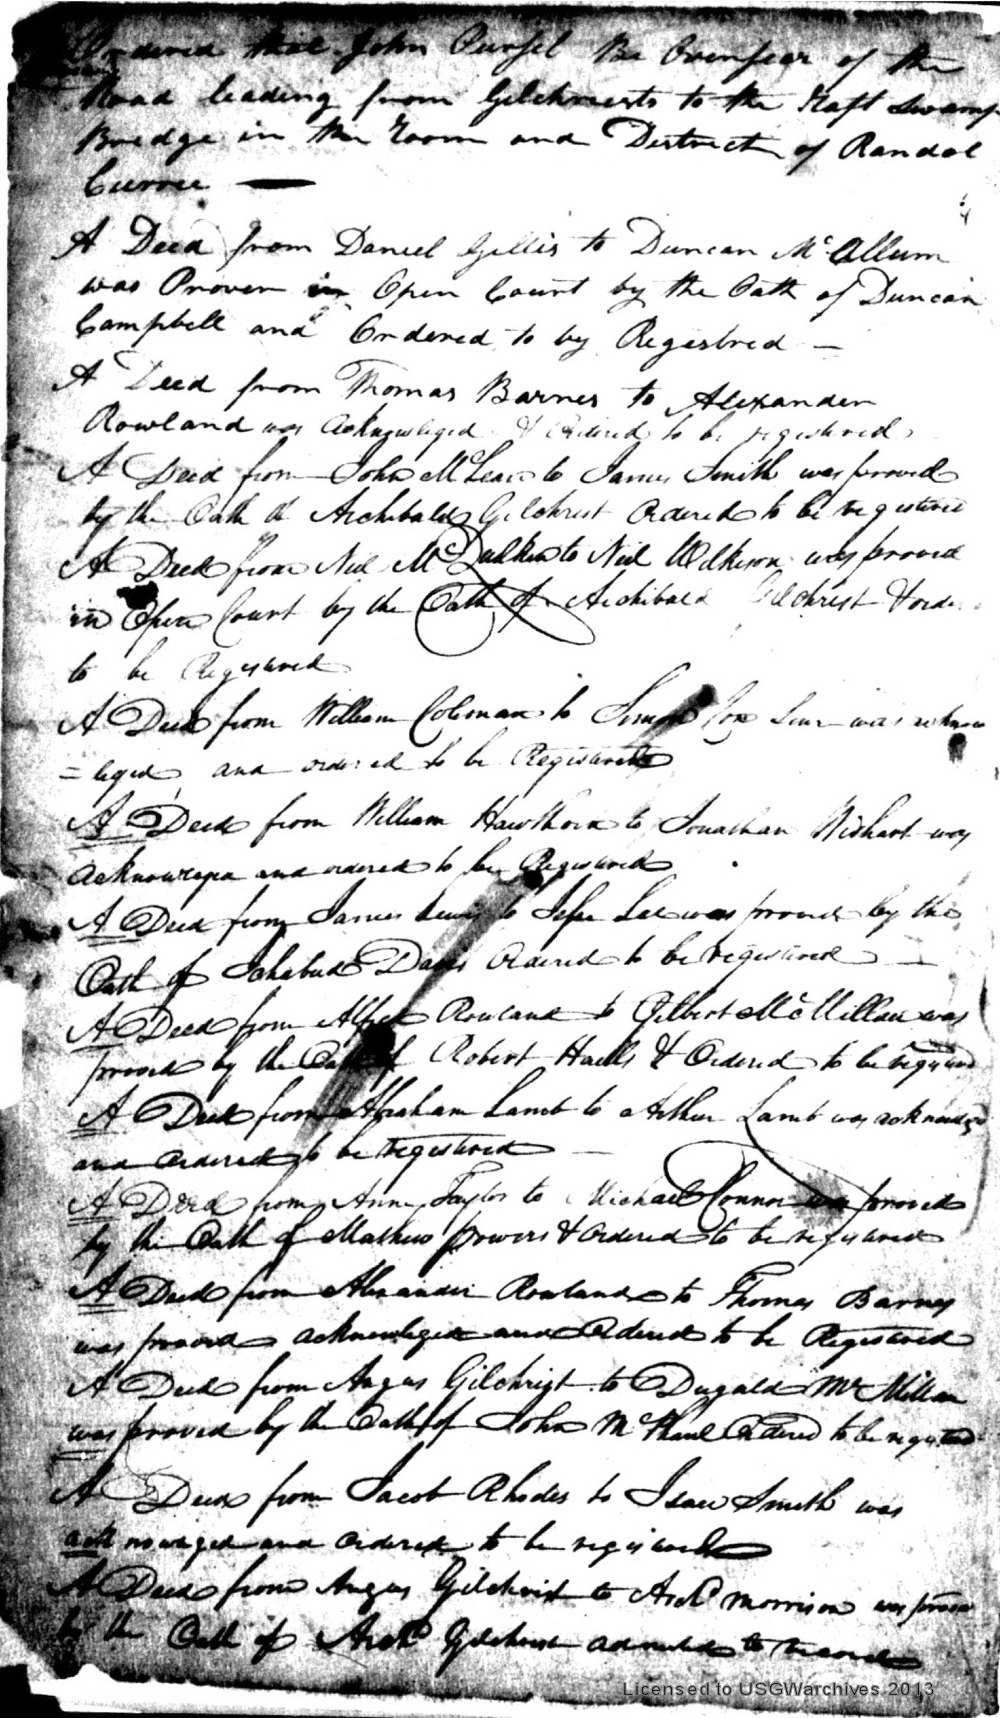 Ordered that John Pursel Be Overseer of the
Road leading from Gilchriests to the Raft Swamp
Bredge in the Room and Destrect of Randal
Currie —
A Deed from Daniel Gillis to Duncan McCallum
was Proven in Open Court by the Oath of Duncan
Campbell and Ordered to by Registred —
A Deed from Thomas Barnes to Alexander
Rowland was Acknowleged & Ordered to be registered
A Deed from John McLean to James Smith was proved
by the Oath of Archibald Gilchrist Ordered to be registered
A Deed from Neil Mc to Neil Wilkerson was proved
in Open Court by the Oath of Archibald Gilchrist & orde
to be Registered
A Deed from William Coleman to Simon Cox Senr was acknow
=leged and ordered to be Registered
A Deed from William Hawthorn to Jonathan Wishart was
and ordered to be Registered
A Deed from James Lewis to Jesse Lee was proved by the
Oath of Ichabud Davis Ordered to be registered —
A Deed from Alfred Rowland to Gilbert McMillan was
proved by the Oath of Robert & Ordered to be registered
A Deed from Abraham Lamb to Arthur Lamb was acknowledgd
and Ordered to be registered —
A Deed from Anny Taylor to Michael Connor was proved
by the Oath of Mathew powers & Ordered to be registered
A Deed from Alexander Rowland to Thomas Barnes
was proved acknowleged and Ordered to be Registered
A Deed from Angus Gilchrist to Dugald McMillan
was proved by the Oath of John McPhaul Ordered to be registered
A Deed from Jacob Rhodes to Isaac Smith was
acknowaged and Ordered to be registered
A Deed from Angus Gilchrist to Archd Morrison was proven
by the Oath of Archd Gilchrist admited to record
Licensed to USGWarchives 2013